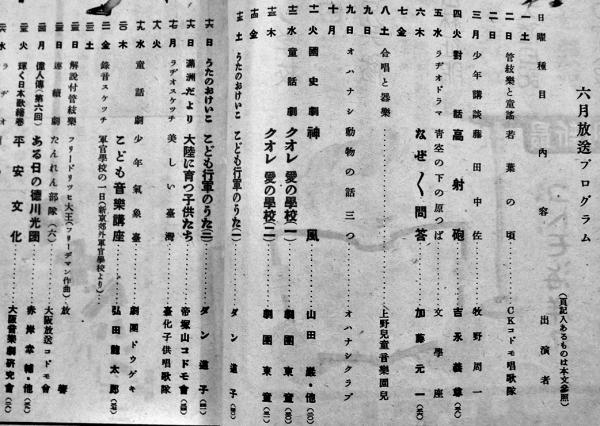 六月放送プログラム
(頁記入あるものは本文参照)
日 曜 種目 內容 出演者
一 土
二 日 管絃樂と童謠 若葉の頃 CKコドモ唱歌隊
三 月 少年講談 藤田中佐 牧野周一
四 火 對話 高射砲 吉永義尊
五 水 ラヂオドラマ 靑空の下の原つぱ 文學座
六 木 なぜなぜ問答 加藤元一
七 金
八 土 合唱と器樂 上野兒童音樂園兒
九 日 オハナシ 動物の話三つ オハナシクラブ
十 月
十一 火 國史劇 神風 山田巖・他
十二 水 童話劇 クオレ 愛の學校(一) 劇團東童
十三 木 クオレ 愛の學校(二) 劇團東童
十四 金
十五 土 うたのおけいこ こども行軍のうた(一) ダン道子
十六 日 うたのおけいこ こども行軍のうた(二) ダン道子
滿洲だより 大陸に育つ子供たち 帝塚山コドモ會
十七 月 ラヂオスケツチ 美しい臺灣 臺化子供唱歌隊
十八 火
十九 水 童話劇 少年氣象臺 劇團ドウゲキ
二十 木 こども音樂講座 弘田龍太郎
二一 金 錄音スケツチ 軍官學校の一日(新京郊外軍官學校より)
二二 土
二三 日 解說付管絃樂 フリードリツヒ大王(フリーデマン作曲) 放響
連續劇 たんれん部隊(六) 大阪放送コドモ會
二四 月 偉人傳(第六回) ある日の德川光圀 赤岸章輔・他
二五 火 輝く日本歌繪卷 平安文化 大阪音樂劇硏究會